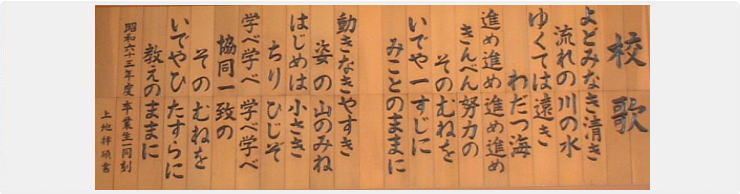 校歌
よどみなき清き
流れの川の水
ゆくては遠き
わだつ海
進め進め進め進め
きんべん努力の
そのむねを
いでや一すじに
みことのままに
動きなきやすき
姿の山のみね
はじめは小さき
ちりひじぞ
学べ学べ学べ学べ
協同一致の
そのむねを
いでやひたすらに
教えのままに
昭和六十三年度卒業生一同刻
上地拝碩書